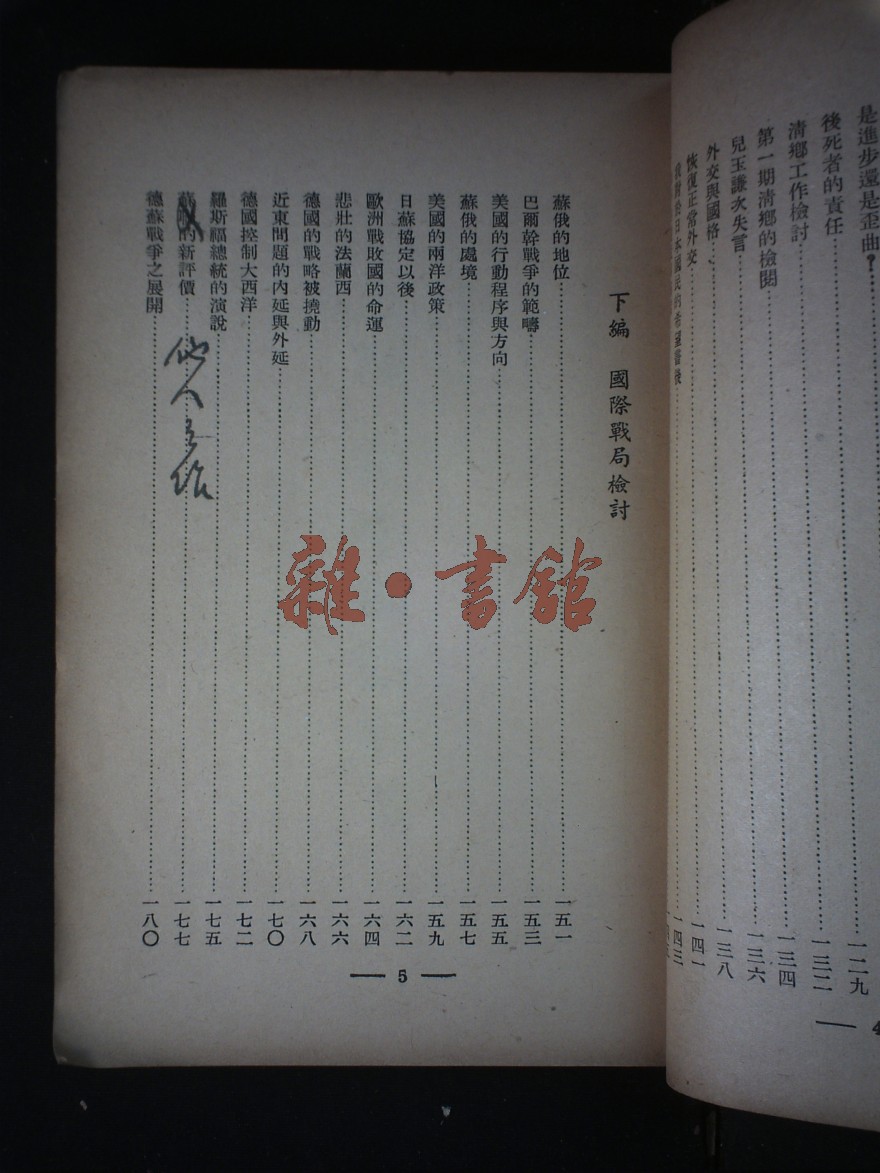 是進步還是歪曲？……一二九
後死者的責任……一三二
清鄉工作檢討……一三四
第一期清鄉的檢閱……一三六
兒玉謙次失言……一三八
外交與國格……一四一
恢復正常外交……一四三
我對於日本國民的希望書後
4
下編 國際戰局檢討
蘇俄的地位……一五一
巴爾幹戰爭的範疇……一五三
美國的行動程序與方向……一五五
蘇俄的處境……一五七
美國的兩洋政策……一五九
日蘇協定以後……一六二
歐洲戰敗國的命運……一六四
悲壯的法蘭西……一六六
德國的戰略被撓動……一六八
近東問題的內延與外延……一七〇
德國控制大西洋……一七二
羅斯福總統的演說……一七五
蘇的新評價……一七七
他人之作
德蘇戰爭之展開……一八〇
5
雜·書館